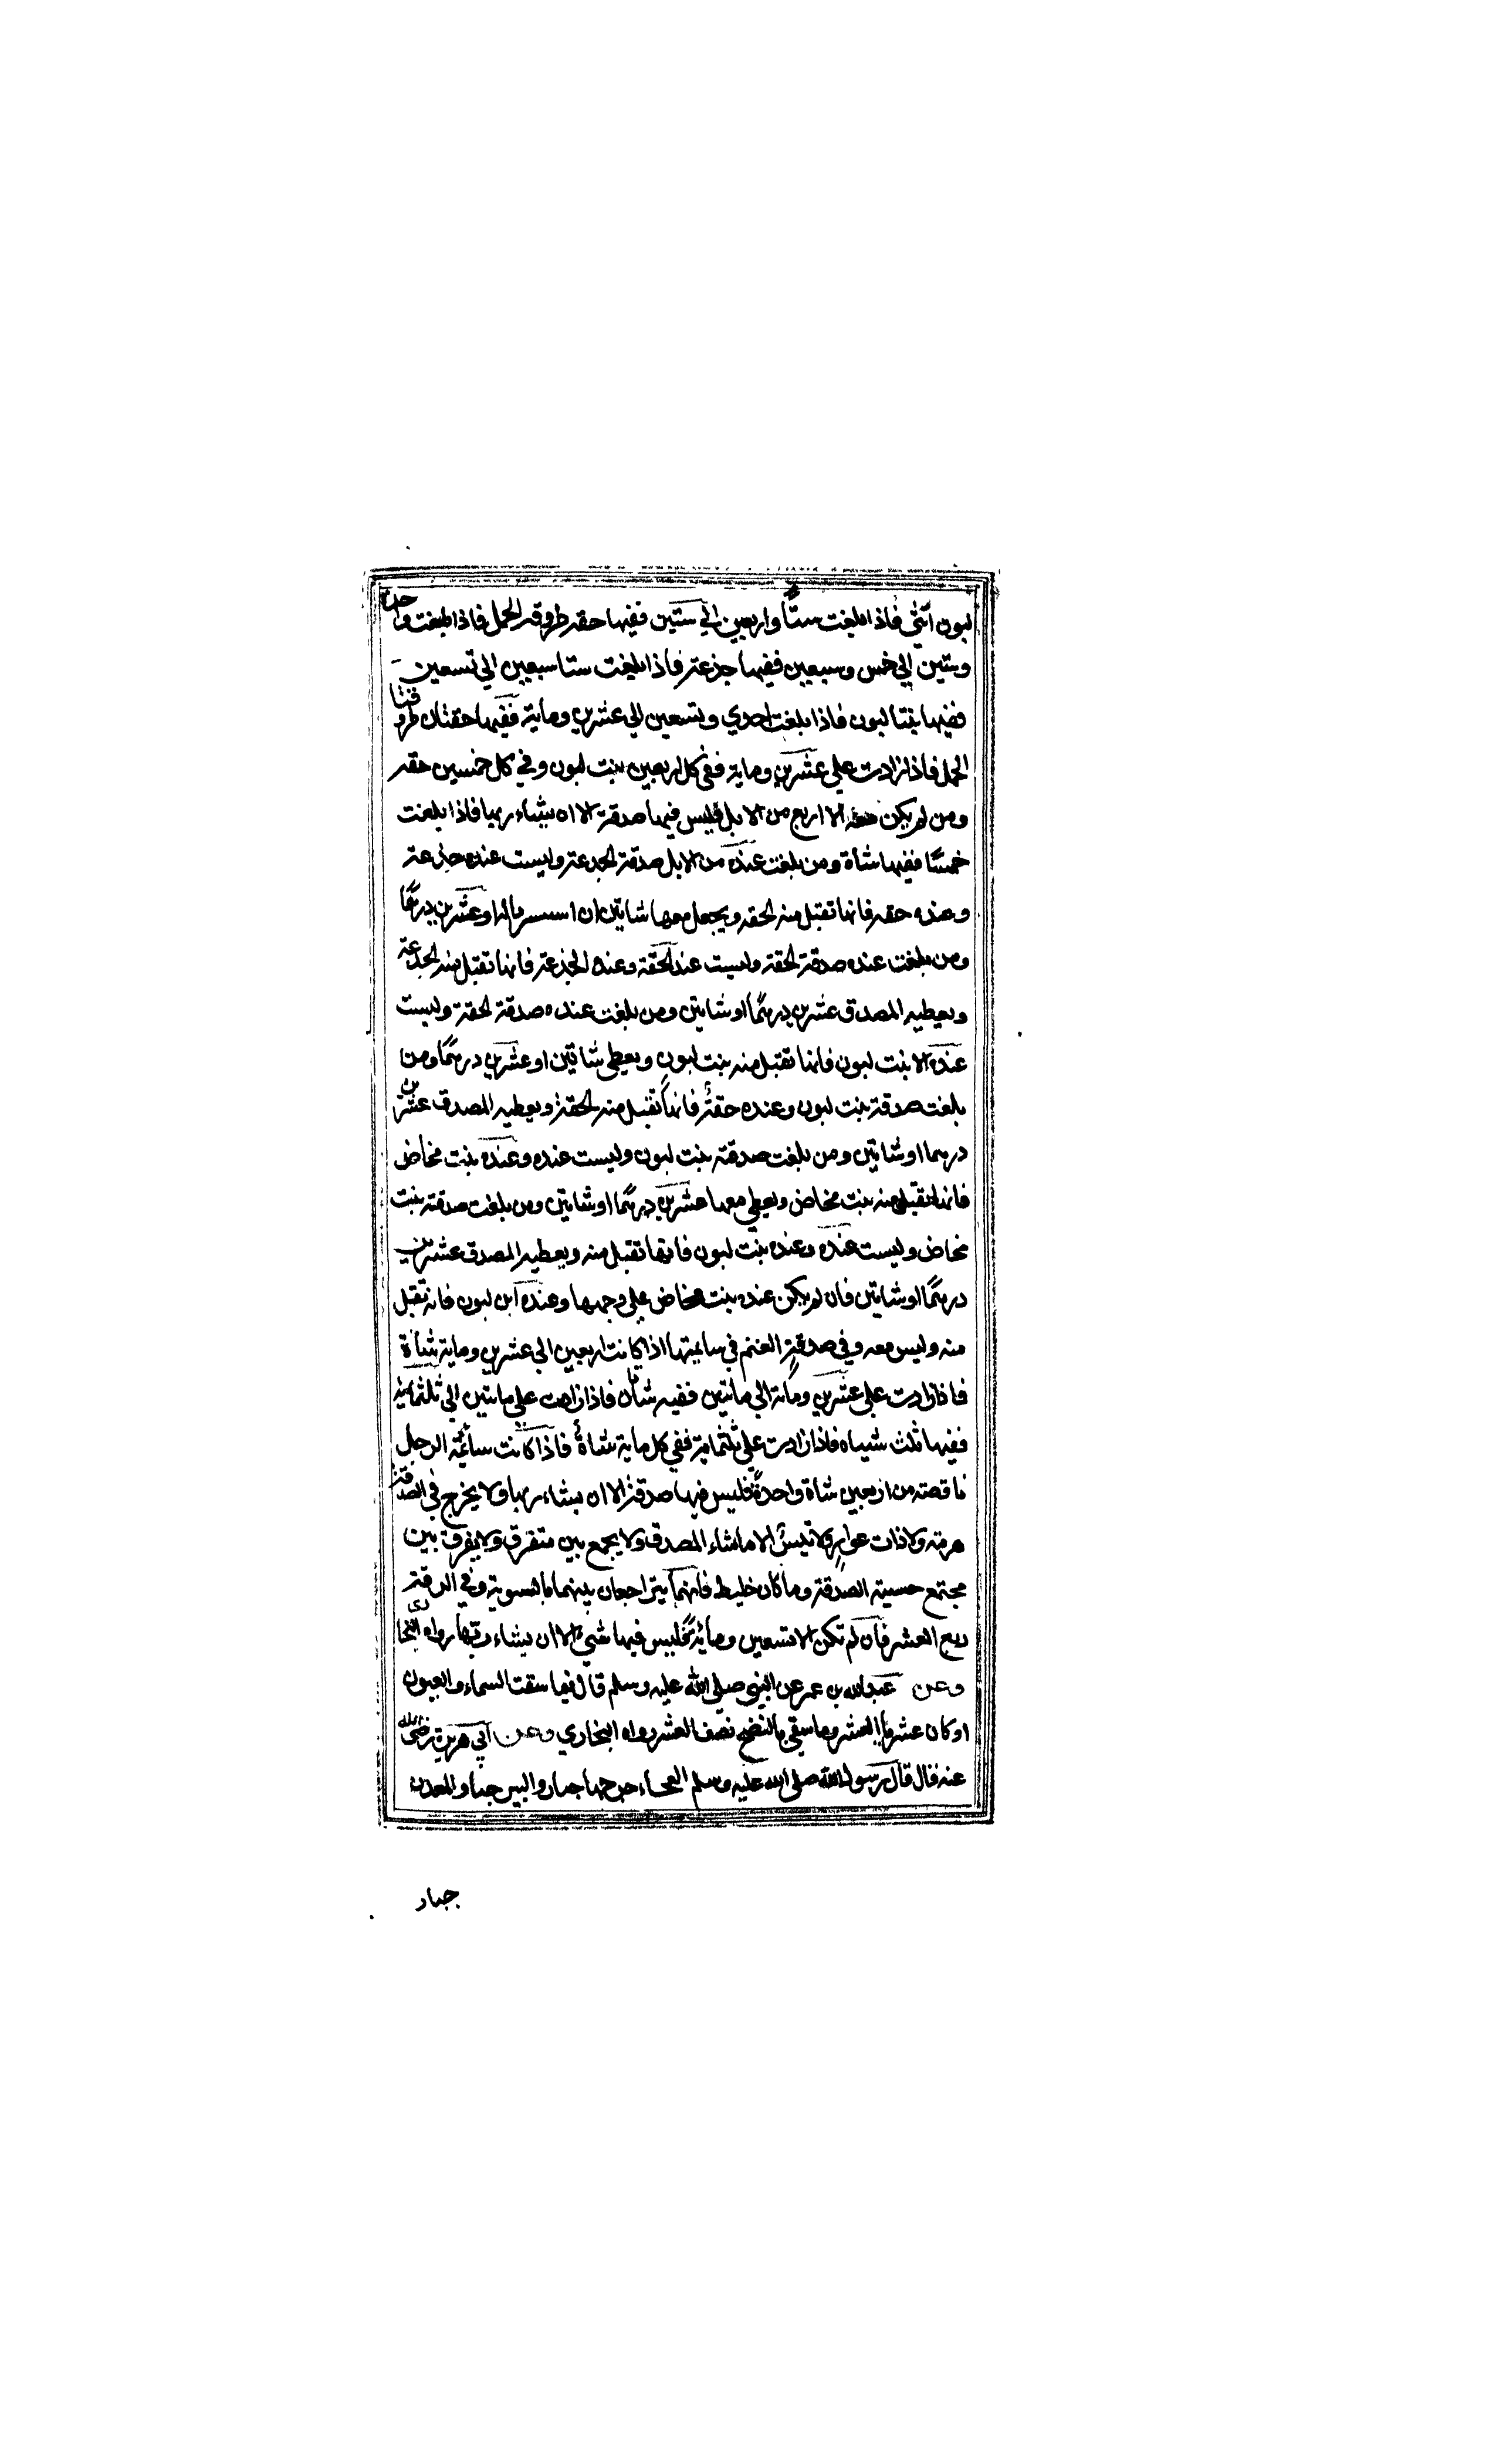 لبون انثي فاذا بلغت ستّا واربعين الي ستين ففيها حقه طروقه الجمل فاذا بلغت واحده
وستين الي خمس وسبعين ففيها جذعة فاذا بلغت ستا سبعين الي تسعين
ففيها بنتا لبون فاذا بلغت احدي وتسعين الي عشرين وماية ففيها حقتان طروقتا
الجمل فاذا زادت علي عشرين وماية ففي كل اربعين بنت لبون وفي كل خمسين حقه
ومن لم يكن معه الا اربع من الابل فليس فيها صدقة الا ان يشاء ربها فاذا بلغت
خمسًا ففيها شاة ومن بلغت عنده من الابل صدقة الجذعة وليست عنده جذعة
وعنده حقه فانها تقبل منه الحقه ويجعل معها شاتين ان استيسر ماله او عشرين درهمًا
ومن بلغت عنده صدقة الحقة وليست عنده الحقة وعنده الجذعة فانها تقبل منه الجذعة
ويعطيه المصدق عشرين درهمًا او شاتين ومن بلغت عنده صدقة الحقة وليست
عنده الا بنت لبون فانها تقبل منه بنت لبون ويعطي شاتين او عشرين درهمًا ومن
بلغت صدقة بنت لبون وعنده حقة فانها تقبل منه الحقة ويعطيه المصدق عشرين
درهما او شاتين ومن بلغت صدقته بنت لبون وليست عنده وعنده بنت مخاض
فانها تقبل منه بنت مخاض ويعطي معها عشرين درهمًا او شاتين ومن بلغت صدقته بنت
مخاض وليست عنده وعنده بنت لبون فانها تقبل منه ويعطيه المصدق عشرين
درهمًا او شاتين فان لم يكن عنده بنت مخاض علي وجهها وعنده ابن لبون فانه تقبل
منه وليس معه وفي صدقة الغنم في سايمتها اذا كانت اربعين الي عشرين وماية شاة
فاذا زادت علي عشرين ومأة الي مائتين ففيه شاتان فاذا زادت علي مايتين الي ثلثماية
ففيها ثلث شياه فاذا زادت علي ثلثماية ففي كل ماية شاة فاذا كانت سائمة الرجل
ناقصة من اربعين شاة واحدة فليس فيها صدقة الا ان يشاء ربها ولا يخرج في الصدقة
هرمة ولا ذات عوار ولا تيس الا ما شاء المصدق ولا يجمع بين متفرق ولا يفرق بين
مجتمع خسية الصدقة وما كان خليط فانهما يتراجعان بينهما بالسوية وفي الرقة
ربع العشر فان لم تكن الا تسعين ومائة فليس فيها شيء الا ان يشاء ربها رواه البخاري
وعن عبدالله بن عمر عن النبي صلي الله عليه وسلم قال فيما سقت السماء والعيون
او كان عشريا العشر وما سقي بالنضح نصف العشر رواه البخاري وعن ابي هريرة رضي الله
عنه قال قال رسول الله صلي الله عليه وسلم العجماء جرحها جبار والبير جبار والمعدن
جبار